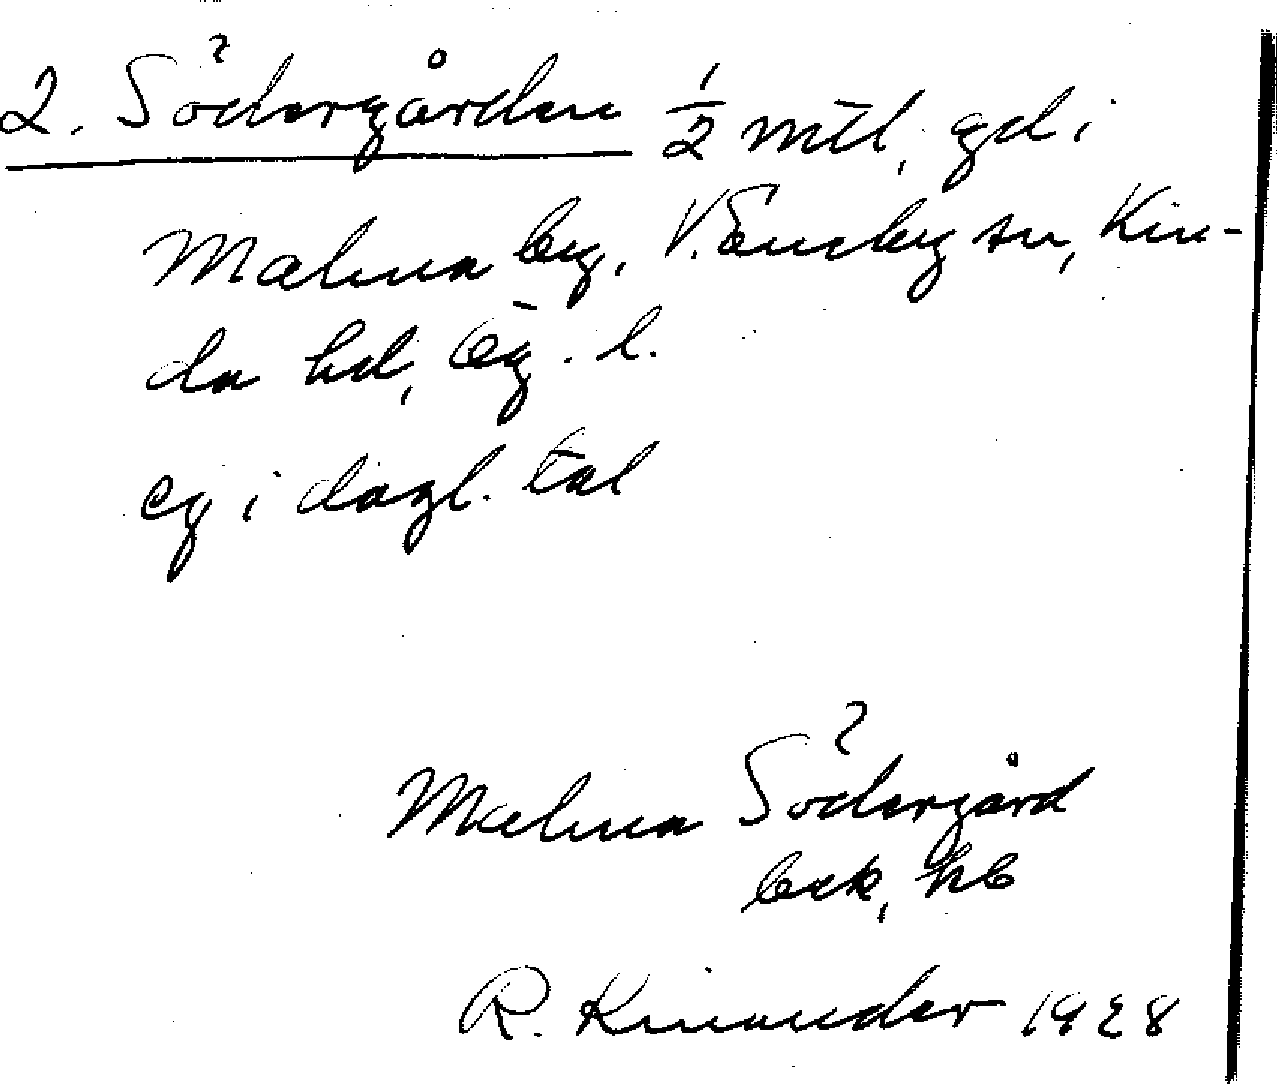 2. Södergården 1/2 mtl, gd i
Malma by, V. Eneby sn, Kin-
da hd, Ög. l.
ej i dagl. tal
Malma Södergård
bek, hb
R. Kinander 1928